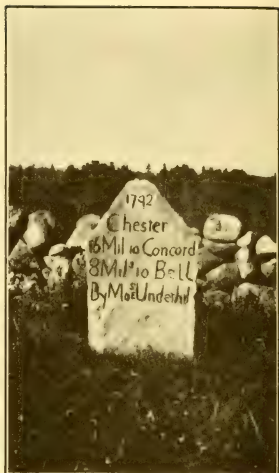 1792
Chester
16 Mil to Concord
8 Mils to Bell
By Mosˢ Underhil